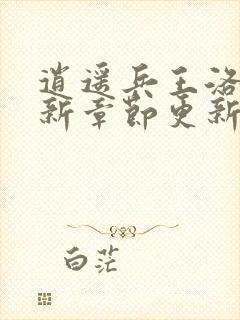 逍遥兵王洛
新章节更新
白茫